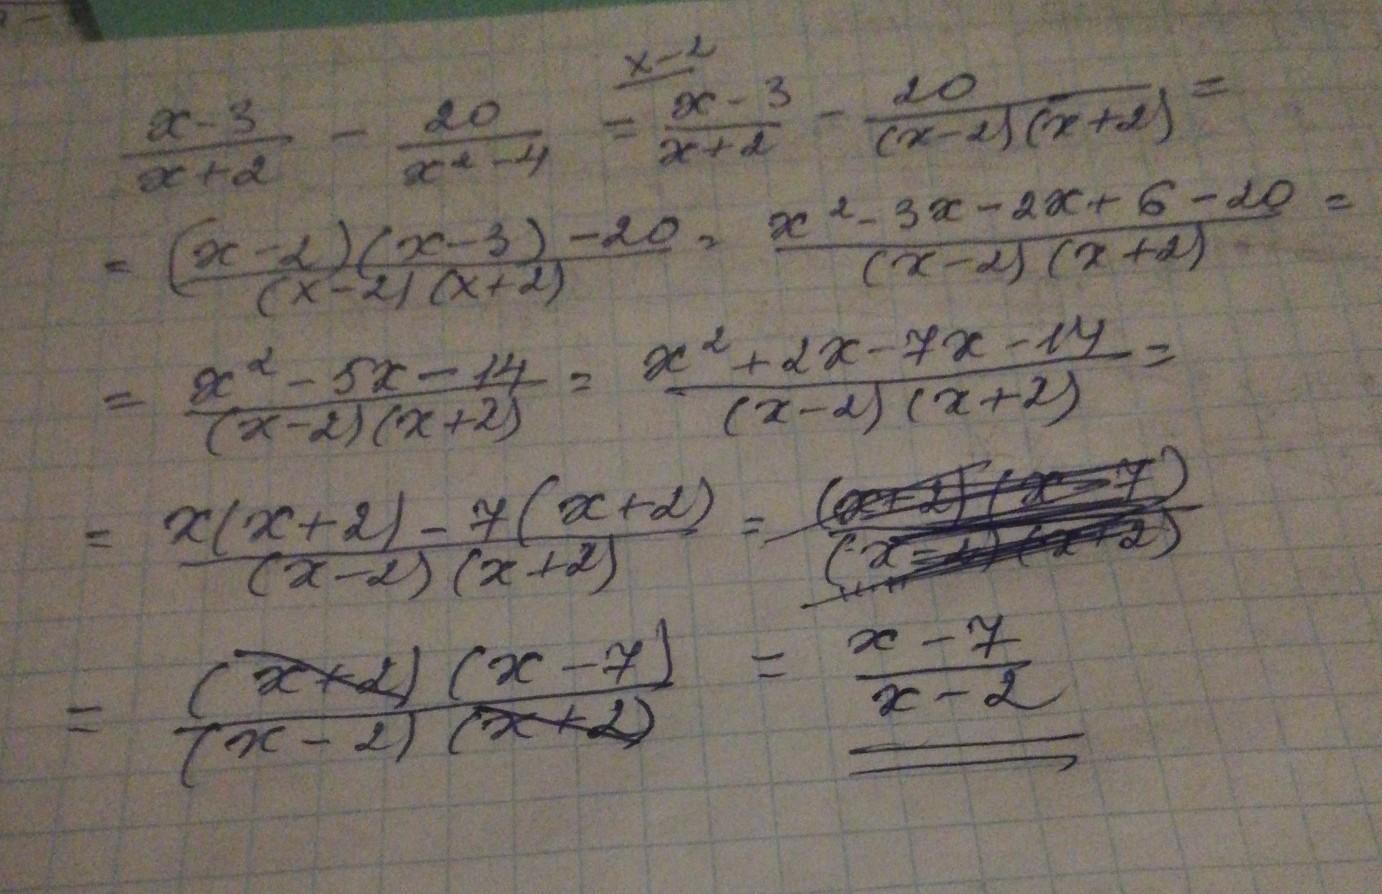 x-2
(x-3)/(x+2) - 20/(x²-4) = (x-3)/(x+2) - 20/((x-2)(x+2)) =
= ((x-2)(x-3)-20)/((x-2)(x+2)) = (x²-3x-2x+6-20)/((x-2)(x+2)) =
= (x²-5x-14)/((x-2)(x+2)) = (x²+2x-7x-14)/((x-2)(x+2)) =
= (x(x+2)-7(x+2))/((x-2)(x+2)) = ((x+2)(x-7))/((x-2)(x+2))
= ((x+2)(x-7))/((x-2)(x+2)) = (x-7)/(x-2)